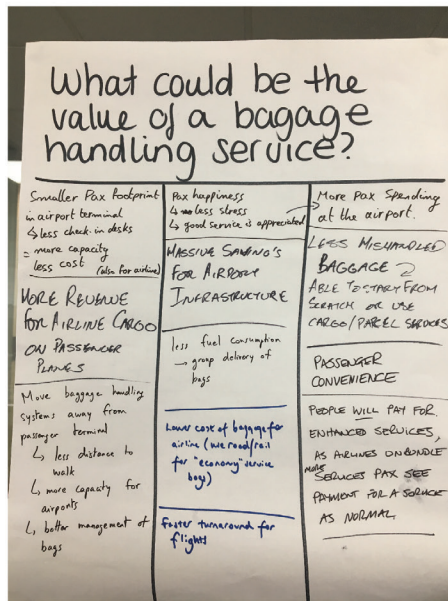 What could be the
value of a bagage
handling service?
Smaller Pax footprint
in airport terminal
↳ less check-in desks
= more capacity
less cost (also for airline)
MORE REVENUE
FOR AIRLINE CARGO
ON PASSENGER
PLANES
Move baggage handling
systems away from
passenger terminal
↳ less distance to
walk
↳ more capacity for
airports
↳ better management of
bags
Pax happiness
↳ less stress
↳ good service is appreciated
MASSIVE SAVING'S
FOR AIRPORT
INFRASTRUCTURE
less fuel consumption
→ group delivery of
bags
Lower cost of baggage for
airline (use road/rail
for "economy" service
bags)
Faster turnaround for
flights
More Pax Spending
at the airport.
LESS MISHANDLED
BAGGAGE
ABLE TO START FROM
SCRATCH OR USE
CARGO/PARCEL SERVICES
PASSENGER
CONVENIENCE
PEOPLE WILL PAY FOR
ENHANCED SERVICES,
AS AIRLINES UNBUNDLE
MORE
SERVICES PAX SEE
PAYMENT FOR A SERVICE
AS NORMAL